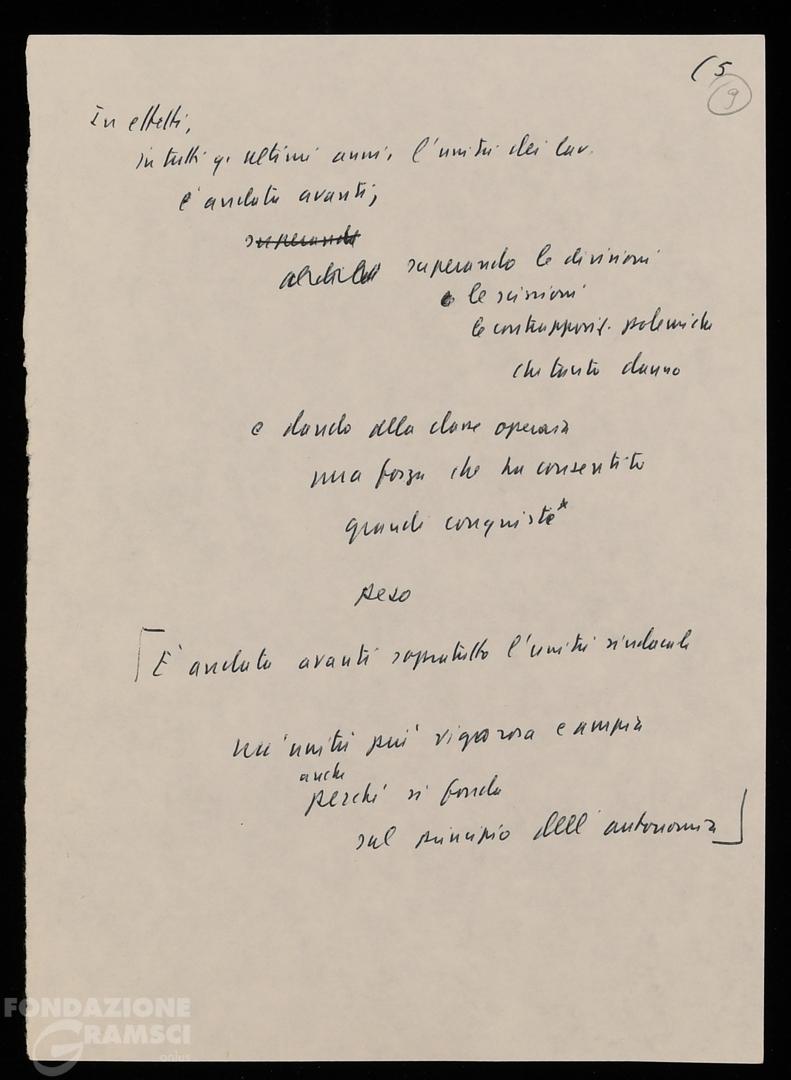 (5
9
In effetti,
in tutti q. ultimi anni, l'unità dei lav.
è andata avanti,
superando
superando le divisioni
le scissioni
le contrapposiz. polemiche
che tanto danno
e dando alla classe operaia
una forza che ha consentito
grandi conquiste*
peso
E' andata avanti sopratutto l'unità sindacale
un'unità più vigorosa e ampia
anche
perché si fonda
sul principio dell'autonomia
FONDAZIONE
GRAMSCI
onlus